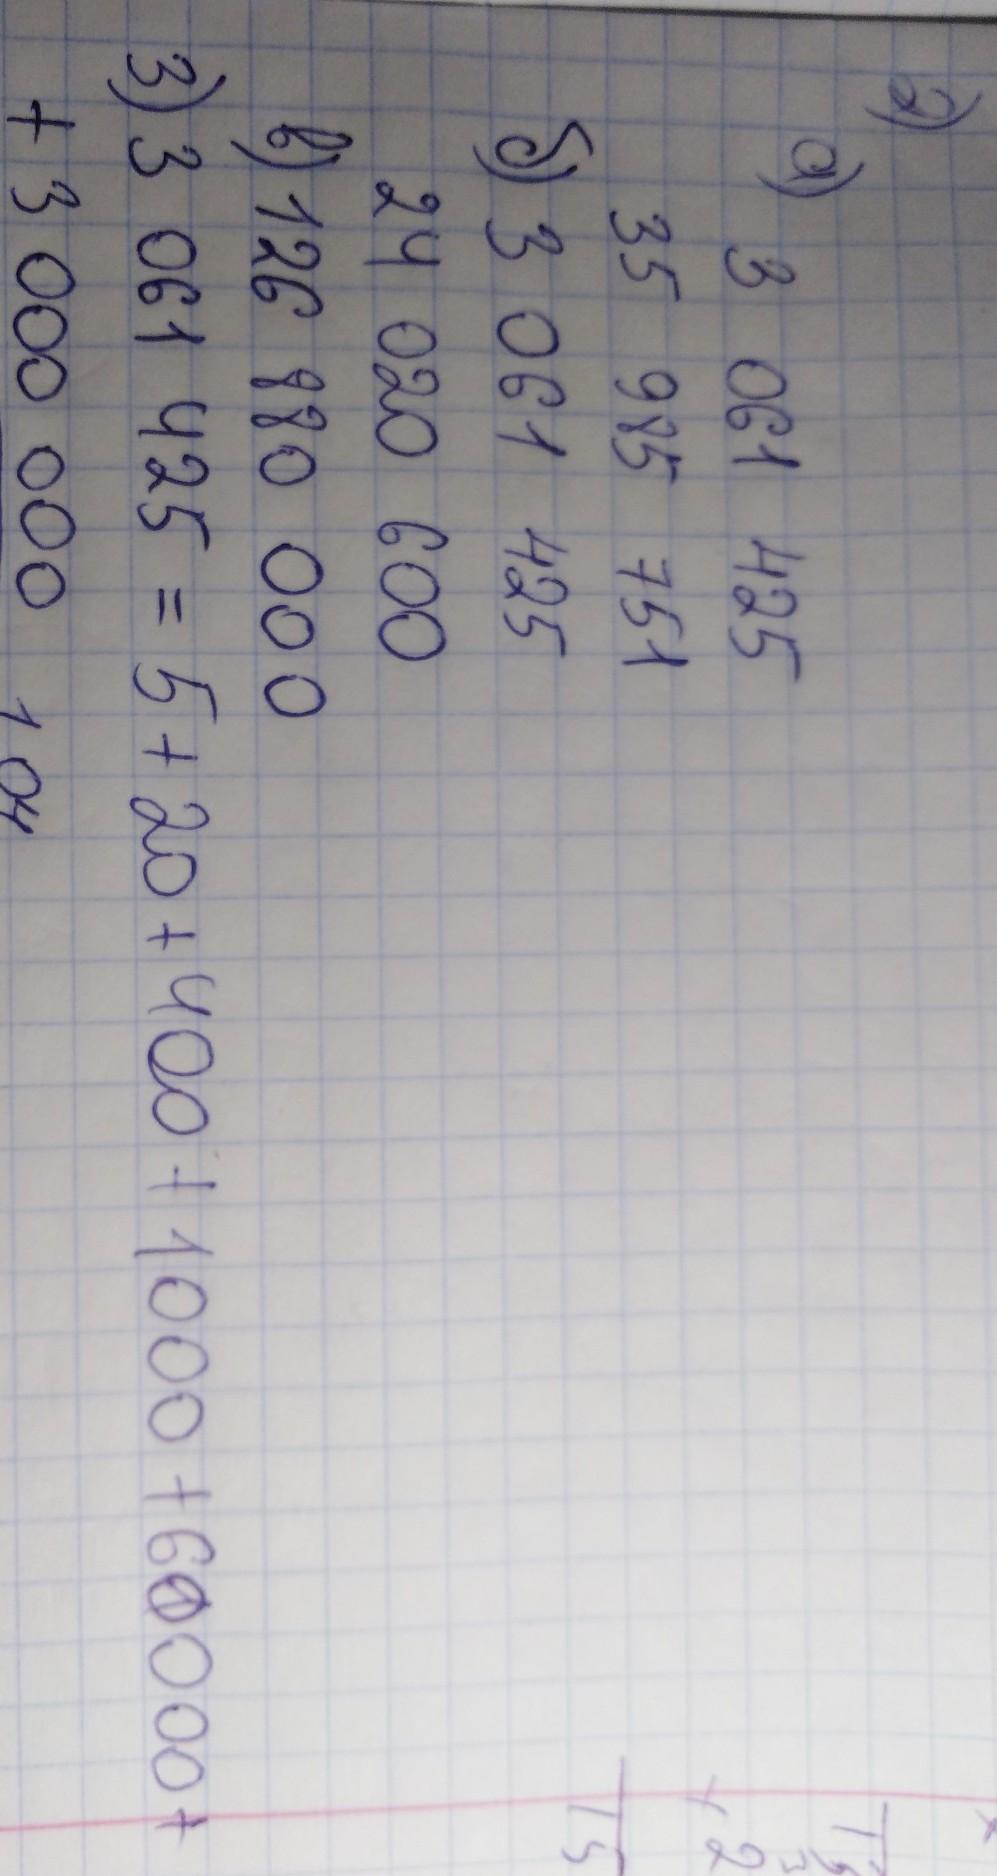 2)
а) 3 061 425
35 985 751
б) 3 061 425
24 020 600
в) 126 880 000
3) 3 061 425 = 5 + 20 + 400 + 1000 + 60000 +
+ 3 000 000 104